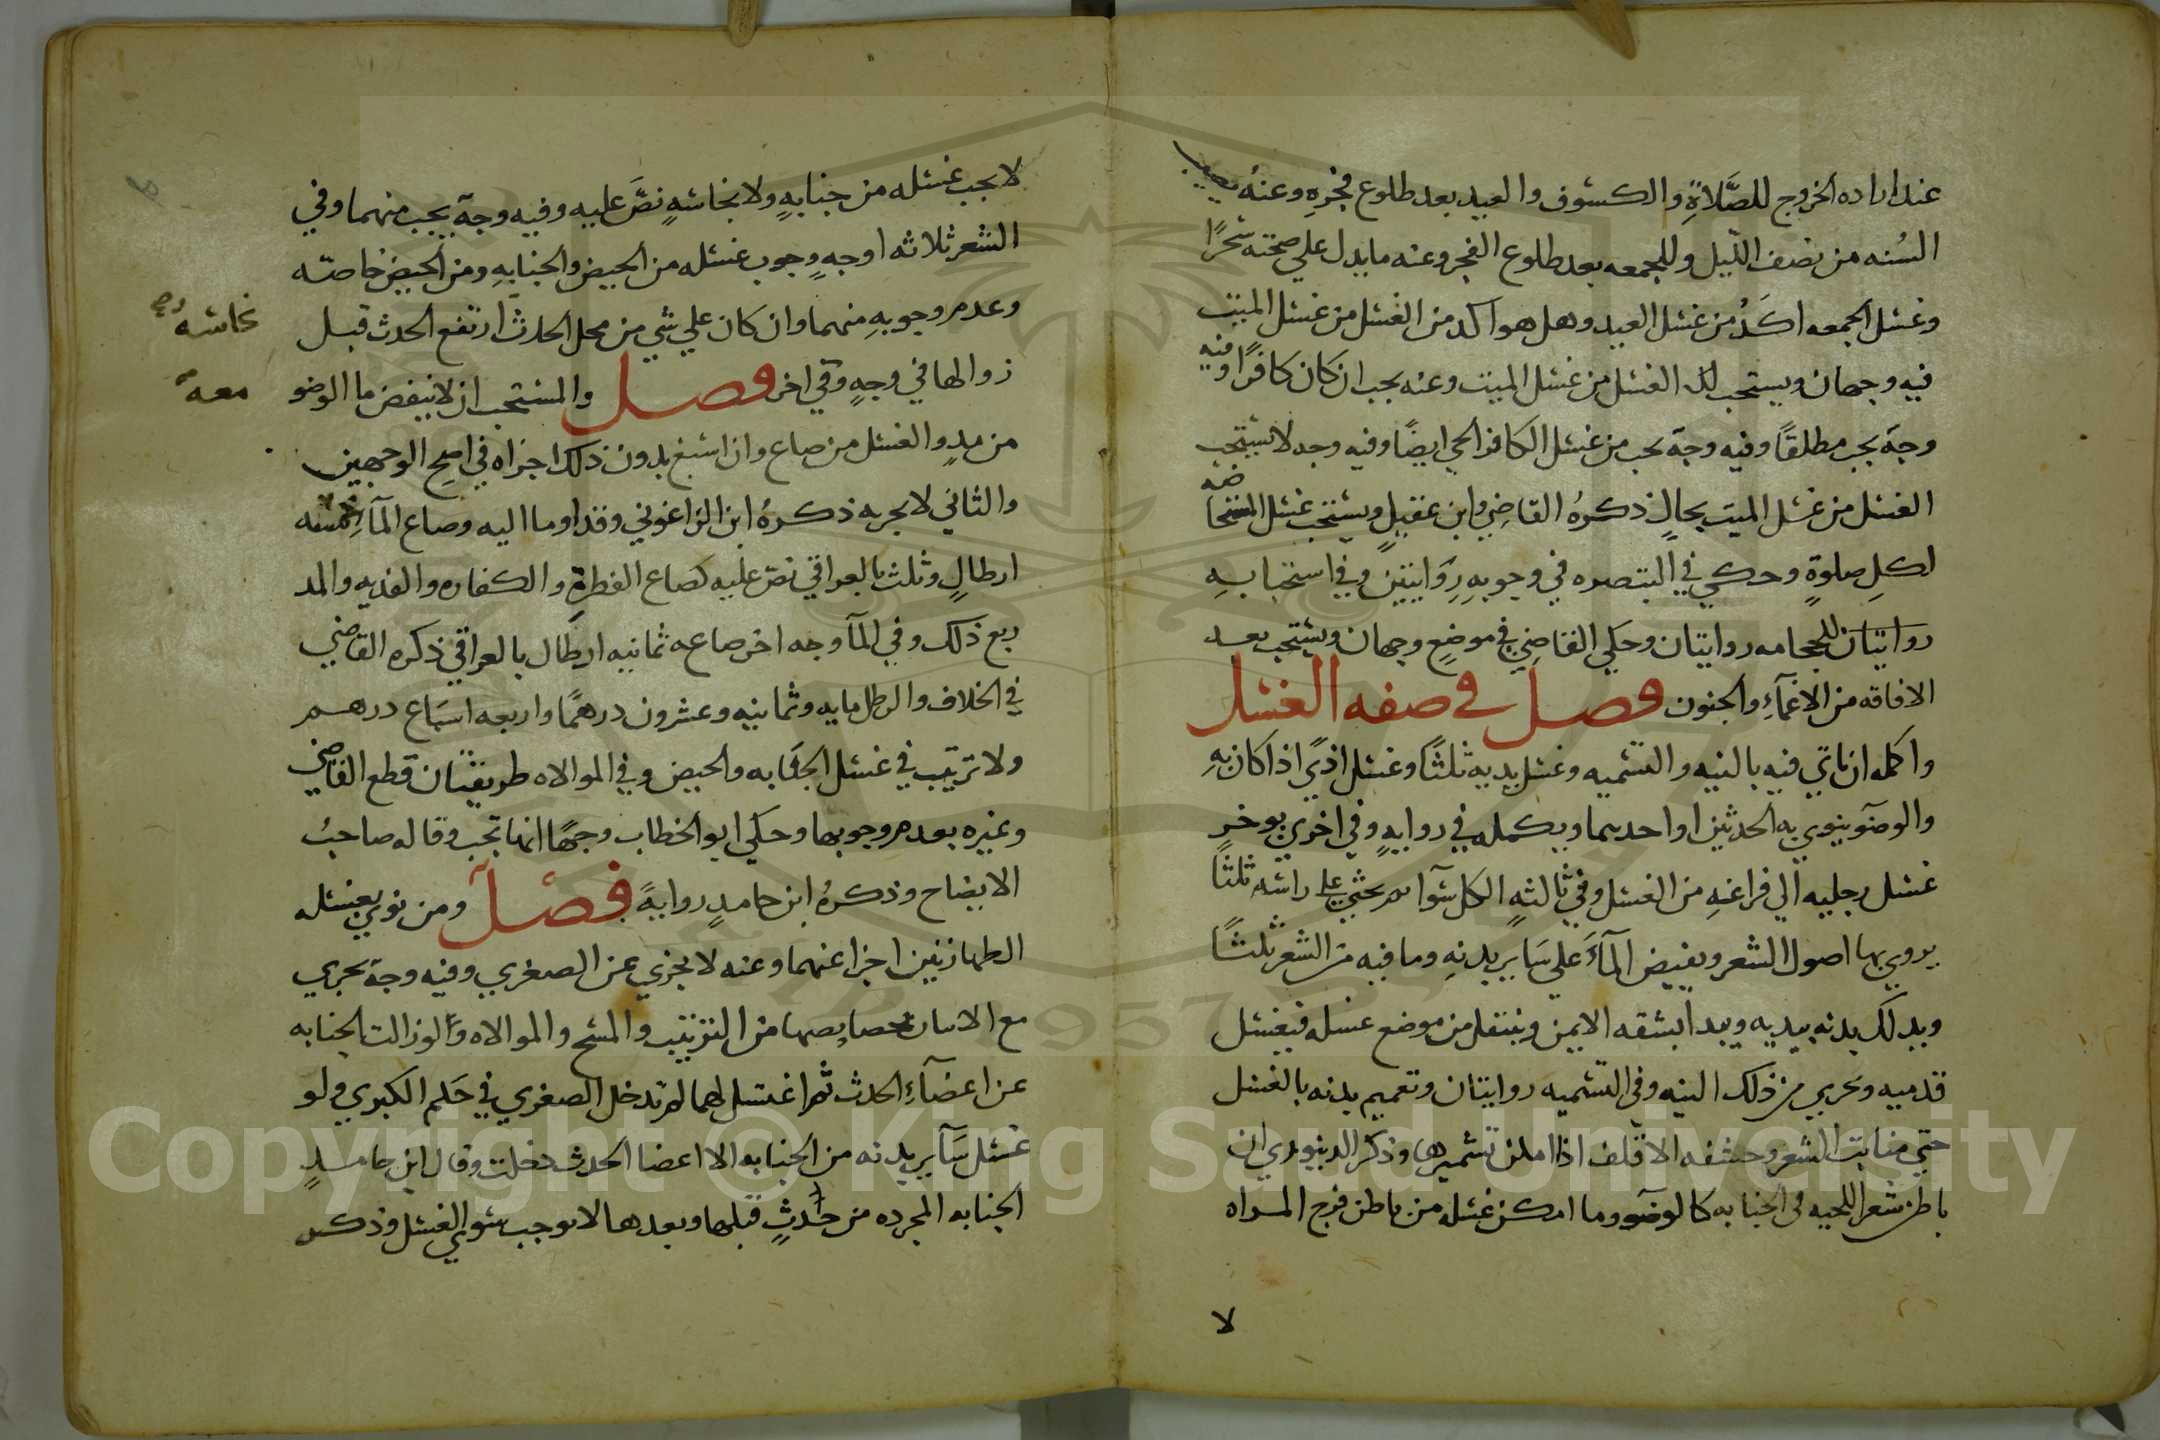 عند اراده الخروج للصَّلاةِ والكسوف والعيد بعد طلوع فجرهِ وعنهُ يصيب
السُنه من نصف الليل وللجمعه بعد طلوع الفجر وعنه ما يدل علي صحته سَحرًا
وغسل الجمعه اكَدُ من غسل العيد وهل هو اكد من الغسل من غسل الميت
فيه وجهان ويستحب له الغسل من غسل الميت وعنه يجب ان كان كافرًا وفيه
وجهٌ يجب مطلقًا وفيه وجهٌ يجب من غسل الكافر الحي ايضًا وفيه وجه لا يستحب
الغسل من غسل الميت بحالٍ ذكرهُ القاضِي وابن عقيلٍ ويستحب غسل المستحاضه
لكلِ صلوةٍ وحكي في التبصره في وجوبهِ رِوَايتين وفي استحبابهِ
روايتان للحجامه روايتان وحكي القاضي في موضعٍ وجهان ويستحب بعد
الافاقه من الاغمآءِ والجنون فصل في صفه الغسل
واكمله ان ياتي فيه بالنيه والتسميه وغسل يديه ثلثًا وغسل اذيً اذا كان بهِ
والوضوَ ينوي به الحدثين او احديهما ويكمله في روايهٍ وفي اخري يوخر
غسل رجليه الي فراغهِ من الغسل وفي ثالثهٍ الكل سَوآ ثم يحثي علي راسه ثلثا
يروي بها اصول الشعر ويفيض المآءَ علي سَاير بدنهِ وما فيه من الشعر ثلثًا
ويدلك بدنه بيديه ويبدا بشقه الايمن وينتقل من موضع غسله فيغسل
قدميه ويجزي من ذلك النيه وفي التسميه روايتان وتعميم بدنه بالغسل
حتي منابت الشعر وحشفه الاقلف اذا امكن تشميرها وذكر الدينوري ان
باطن شعر اللحيه في الجنابه كالوضوَ وما امكن غسله من باطن فرج المراه
لا
لا يجب غسله من جنابهٍ ولا نجاسَهٍ نصَّ عليه وفيه وجهٌ يجب منهما وفي
الشعر ثلاثه اوجهٍ وجوب غسله من الحيض والجنابهِ ومن الحيض خاصَّه
وعدم وجوبهِ منهما وان كان علي شي من محل الحدث ارتفع الحدث قبل
زوالها في وجهٍ وفي اخر فصل والمستحب ان لا ينقض ما الوضو
من مدٍ والغسل من صاع وان اسبغ بدون ذلك اجزاه في اصحِ الوجهين
والثاني لا يجزيه ذكرهُ ابن الزاغوني وقد اوما اليه وصاع المآءِ خمسه
ارطالٍ وثلث بالعراقي نصّ عليه كصاع الفطرةِ والكفاره والفديه والمد
ربع ذلك وفي المآ وجه اخر صاعه ثمانيه ارطال بالعراقي ذكره القاضي
في الخلاف والرطل مايه وثمانيه وعشرون درهمًا واربعه اسبَاع درهم
ولا ترتيب في غسل الجنَابه والحيض وفي الموالاه طريقتان قطع القاضي
وغيره بعدم وجوبها وحكي ابو الخطاب وجهًا انها تجب وقاله صاحبُ
الايضاح وذكرهُ ابن حامدٍ روايةً فصل ومن نوي بغسله
الطهارتين اجزا عنهما وعنه لا يجزي عن الصغري وفيه وجهٌ يجزي
مع الاتيان بخصايصها من الترتيب والمسح والموالاه ولو زالت الجنابه
عن اعضآءِ الحدث ثم اغتسل لهما لم تدخل الصغري في حَكم الكبري ولو
غسل سَآير بدنه من الجنابه الا اعضا الحدث دخلت وقال ابن حامدٍ
الجنابه المجرده من حَدثٍ قبلها وبعدها لا توجب سَوي الغسل وذكر
نجاسَه صح
معه
Copyright © King Saud University
1957